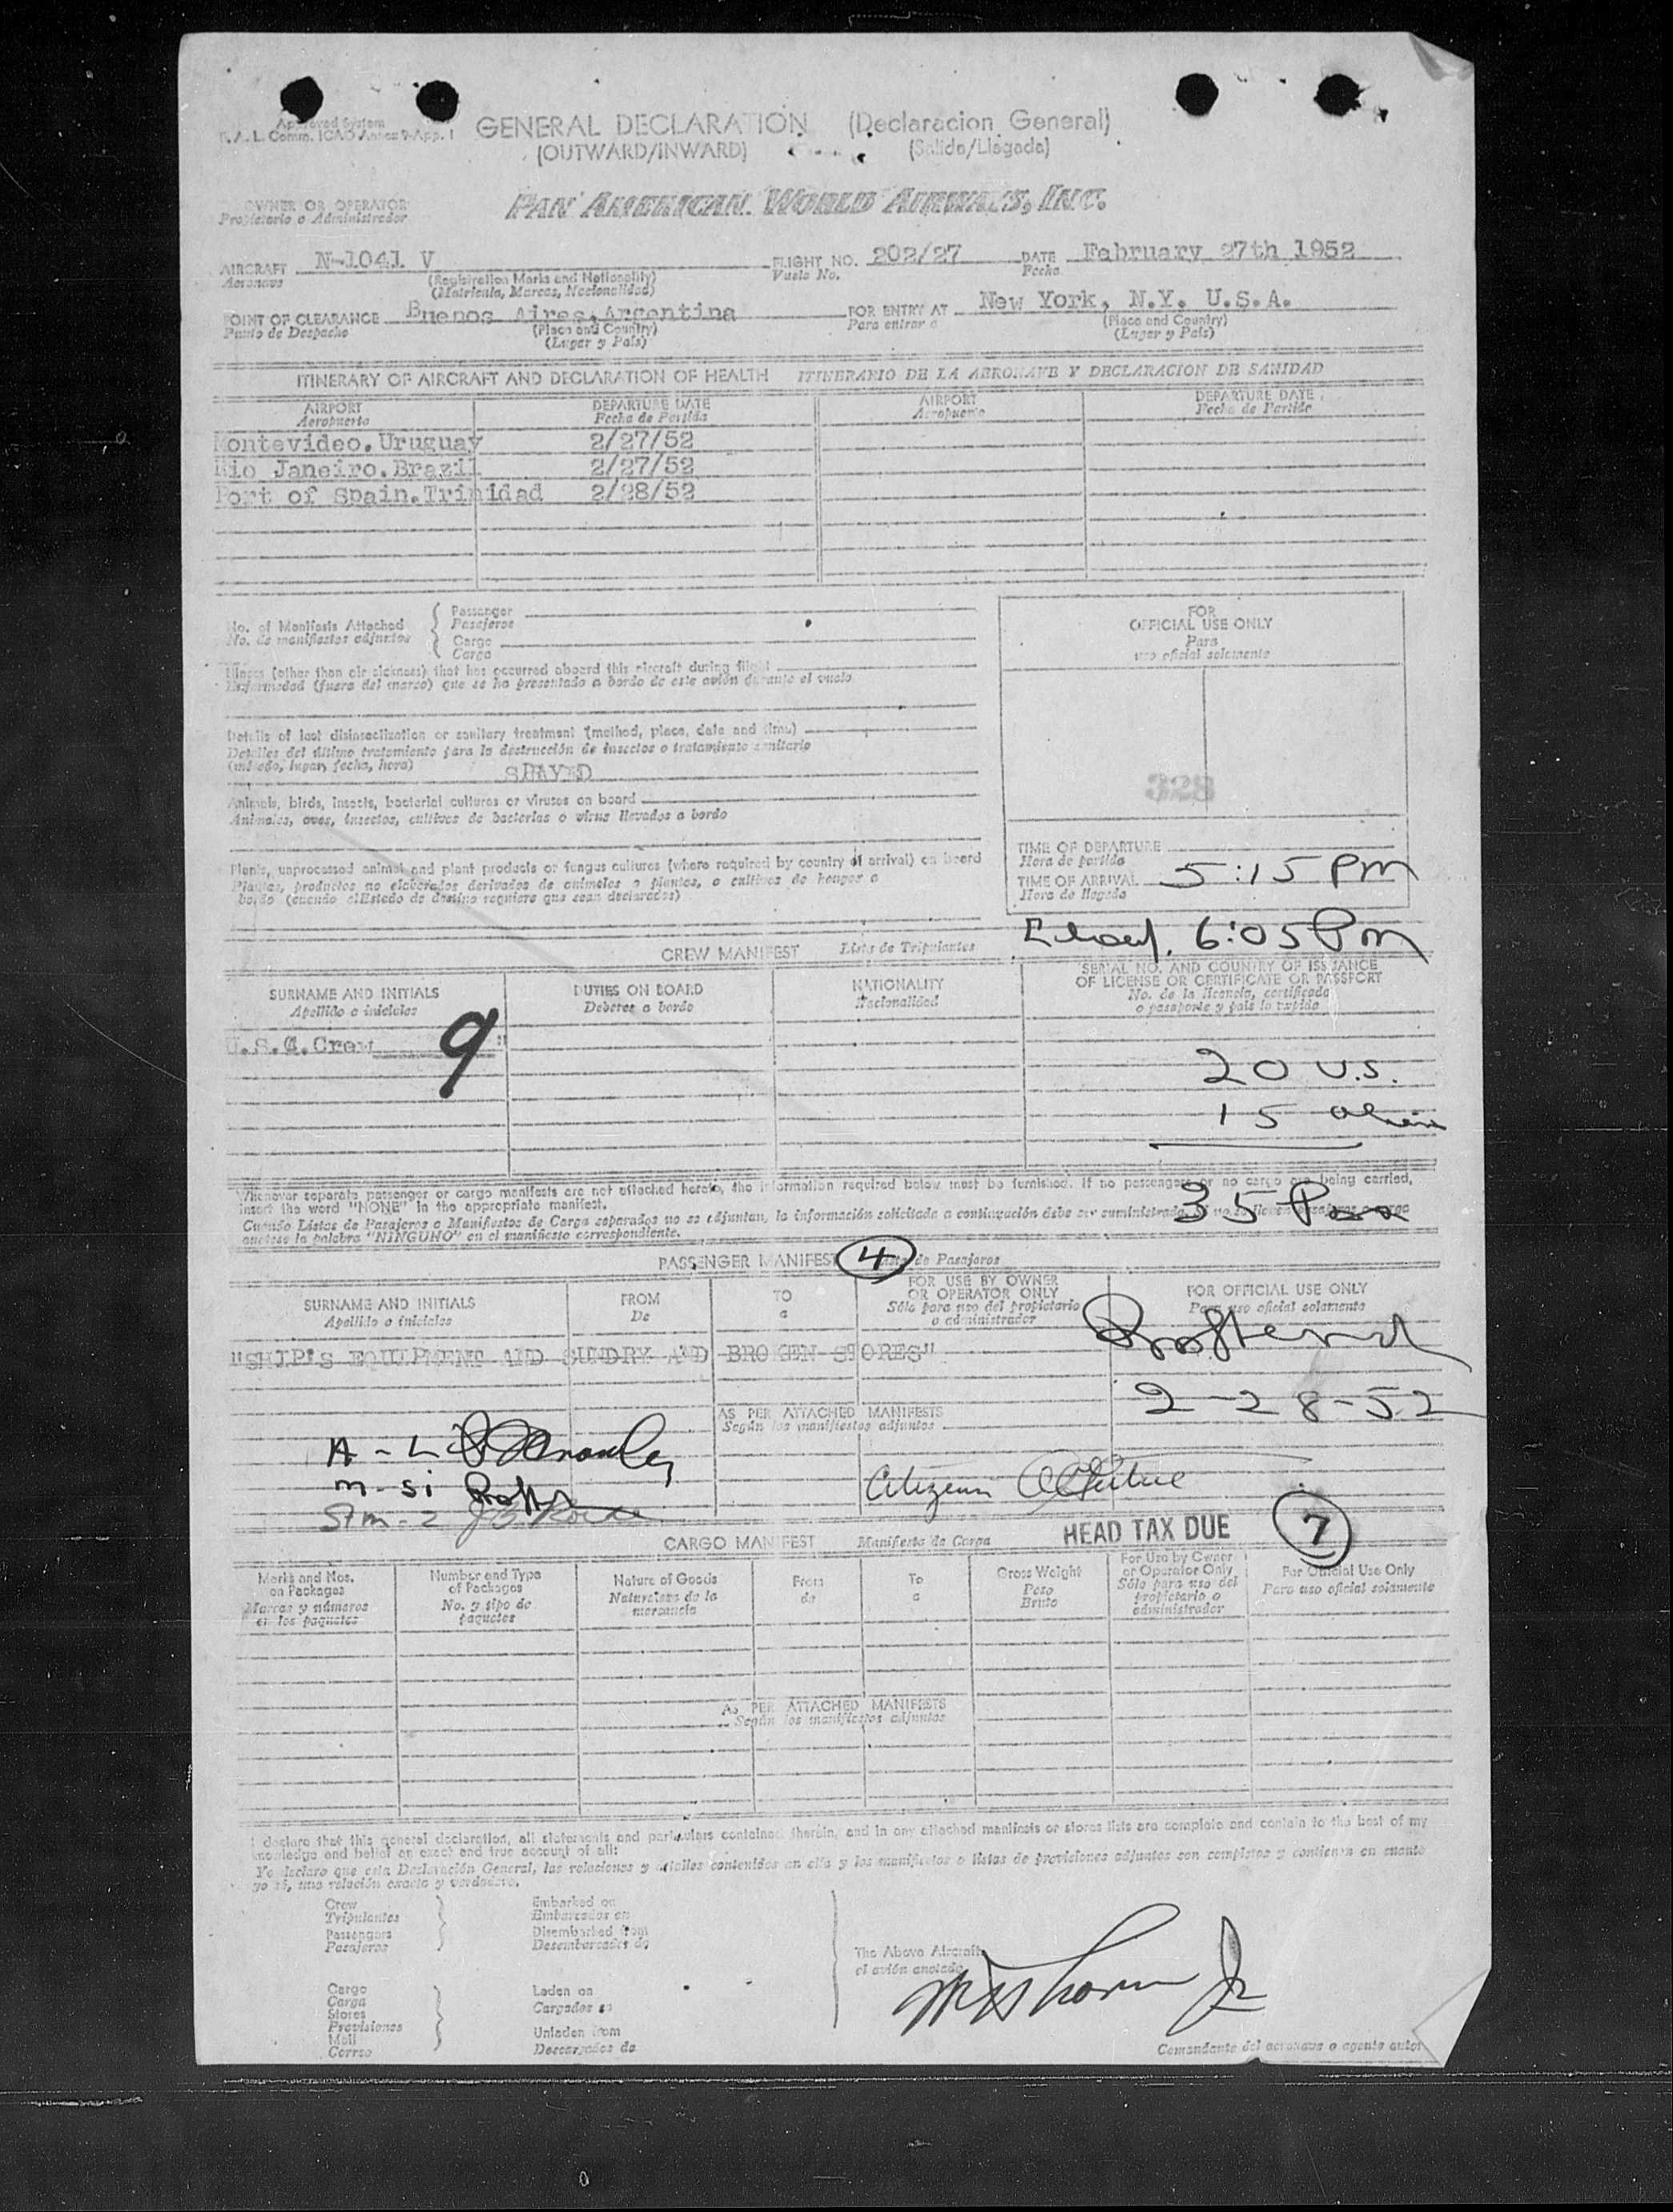 Approved System
F.A.L. Comm. ICAO Annex 9-App. 1
GENERAL DECLARATION (Declaracion General)
(OUTWARD/INWARD) (Salida/Llegada)
OWNER OR OPERATOR
Propietario o Administrador
PAN AMERICAN WORLD AIRWAYS, INC.
AIRCRAFT N-1041 V FLIGHT NO. 202/27 DATE February 27th 1952
Aeronave Vuelo No. Fecha
(Registration Marks and Nationality)
(Matricula, Marcas, Nacionalidad)
POINT OF CLEARANCE Buenos Aires, Argentina FOR ENTRY AT New York, N.Y. U.S.A.
Punto de Despacho (Place and Country) Para entrar a (Place and Country)
(Lugar y País) (Lugar y País)
ITINERARY OF AIRCRAFT AND DECLARATION OF HEALTH ITINERARIO DE LA AERONAVE Y DECLARACION DE SANIDAD
AIRPORT DEPARTURE DATE AIRPORT DEPARTURE DATE
Aeropuerto Fecha de Partida Aeropuerto Fecha de Partida
Montevideo.Uruguay 2/27/52
Rio Janeiro.Brazil 2/27/52
Port of Spain.Trinidad 2/28/52
No. of Manifests Attached
No. de manifiestos adjuntos
Passenger
Pasajeros
Cargo
Carga
FOR
OFFICIAL USE ONLY
Para
uso oficial solamente
Illness (other than air sickness) that has occurred aboard this aircraft during flight
Enfermedad (fuera del mareo) que se ha presentado a bordo de este avión durante el vuelo
Details of last disinsectization or sanitary treatment (method, place, date and time)
Detalles del último tratamiento para la destrucción de insectos o tratamiento sanitario
(método, lugar, fecha, hora)
328
Animals, birds, insects, bacterial cultures or viruses on board
Animales, aves, insectos, cultivos de bacterias o virus llevados a bordo
Plants, unprocessed animal and plant products or fungus cultures (where required by country of arrival) on board
Plantas, productos no elaborados derivados de animales o plantas, o cultivos de hongos a
bordo (cuando el Estado de destino requiere que sean declarados)
TIME OF DEPARTURE
Hora de partida
TIME OF ARRIVAL 5:15 PM
Hora de llegada
6:05 PM
CREW MANIFEST Lista de Tripulantes
SURNAME AND INITIALS DUTIES ON BOARD NATIONALITY SERIAL NO. AND COUNTRY OF ISSUANCE
OF LICENSE OR CERTIFICATE OR PASSPORT
Apellido e iniciales Deberes a bordo Nacionalidad No. de la licencia, certificado
o pasaporte y país lo expido
U.S.C. Crew 9
20 U.S.
15 alien
Whenever separate passenger or cargo manifests are not attached hereto, the information required below must be furnished. If no passengers or no cargo are being carried,
insert the word "NONE" in the appropriate manifest.
35 Pax
Cuando Listas de Pasajeros o Manifiestos de Carga separados no se adjuntan, la información solicitada a continuación debe ser suministrada.
anótese la palabra "NINGUNO" en el manifiesto correspondiente.
PASSENGER MANIFEST 4 de Pasajeros
SURNAME AND INITIALS FROM TO FOR USE BY OWNER
OR OPERATOR ONLY FOR OFFICIAL USE ONLY
Apellido e iniciales De a Sólo para uso del propietario
o administrador Para uso oficial solamente
"SHIP'S EQUIPMENT AND SUNDRY AND BROKEN STORES"
2-28-52
AS PER ATTACHED MANIFESTS
Según los manifiestos adjuntos
HEAD TAX DUE 7
CARGO MANIFEST Manifiesto de Carga
Marks and Nos.
on Packages
Marcas y números
en los paquetes
Number and Type
of Packages
No. y tipo de
paquetes
Nature of Goods
Naturaleza de la
mercancia
From
de
To
a
Gross Weight
Peso
Bruto
For Use by Owner
or Operator Only
Sólo para uso del
propietario o
administrador
For Official Use Only
Para uso oficial solamente
AS PER ATTACHED MANIFESTS
Según los manifiestos adjuntos
I declare that this general declaration, all statements and particulars contained therein, and in any attached manifests or stores lists are complete and contain to the best of my
knowledge and belief an exact and true account of all:
Yo declaro que esta Declaración General, las relaciones y detalles contenidos en ella y los manifiestos o listas de provisiones adjuntos son completos y contienen en cuanto
yo sé, una relación exacta y verdadera.
Crew
Tripulantes
Passengers
Pasajeros
Embarked on
Embarcados en
Disembarked from
Desembarcados de
Cargo
Carga
Stores
Provisiones
Mail
Correo
Laden on
Cargados en
Unladen from
Descargados de
The Above Aircraft
el avión anotado
Comandante del aeronave o agente autor